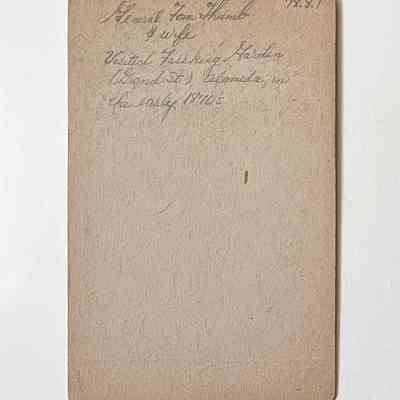 General Tom Thumb
& wife
Visited Fassking Garden
(Grand St.), Alameda, in
the early 1870's